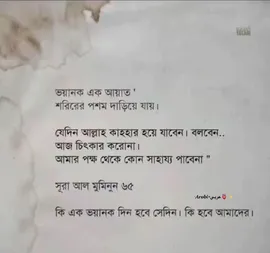 ভয়ানক এক আয়াত '
শরিরের পশম দাড়িয়ে যায়।
যেদিন আল্লাহ কাহহার হয়ে যাবেন। বলবেন..
আজ চিৎকার করোনা।
আমার পক্ষ থেকে কোন সাহায্য পাবেনা "
সূরা আল মুমিনুন ৬৫
কি এক ভয়ানক দিন হবে সেদিন। কি হবে আমাদের।